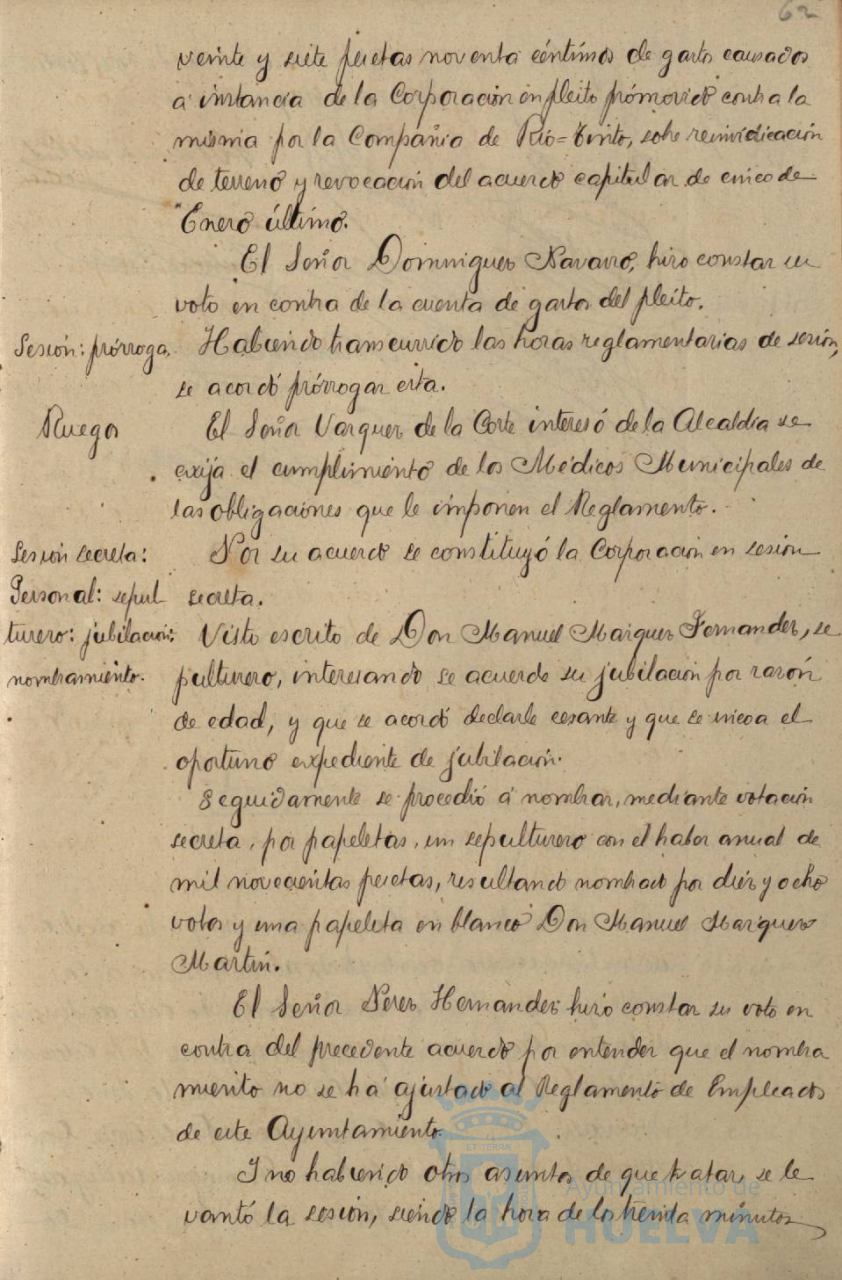 62
veinte y siete pesetas noventa céntimos de gastos causados
á instancia de la Corporación en pleito prómovido contra la
misma por la Compañia de Rio=Tinto, sobre reinvidicación
de terreno y revocación del acuerdo capitular de cinco de
Enero último.
El Señor Dominguez Navarro, hizo constar su
voto en contra de la cuenta de gastos del pleito.
Sesión: prórroga. Habiendo transcurrido las horas reglamentarias de sesión,
se acordó prórrogar esta.
Ruegos El Señor Vazquez de la Corte interesó de la Alcaldia se
exija el cumplimiento de los Médicos Municipales de
las obligaciones que le imponen el Reglamento.
Sesión secreta: Por su acuerdo se constituyó la Corporación en sesión
Personal: sepul secreta.
turero: jubilación: Visto escrito de Don Manuel Marquez Fernandez, se
nombramiento. pulturero, interesando se acuerde su jubilación por razón
de edad, y que se acordó declarle cesante y que se incoa el
oportuno expediente de jubilación.
Seguidamente se procedió á nombrar, mediante votación
secreta, por papeletas, un sepulturero con el haber anual de
mil novecientas pesetas, resultando nombrado por diez y ocho
votos y una papeleta en blanco Don Manuel Marquez
Martin.
El Señor Perez Hernandez hizo constar su voto en
contra del precedente acuerdo por entender que el nombra
miento no se há ajustado al Reglamento de Empleados
de este Ayuntamiento.
I no habiendo otros asuntos de que tratar, se le
vantó la sesión, siendo la hora de los treinta minutos
Ayuntamiento de
HUELVA